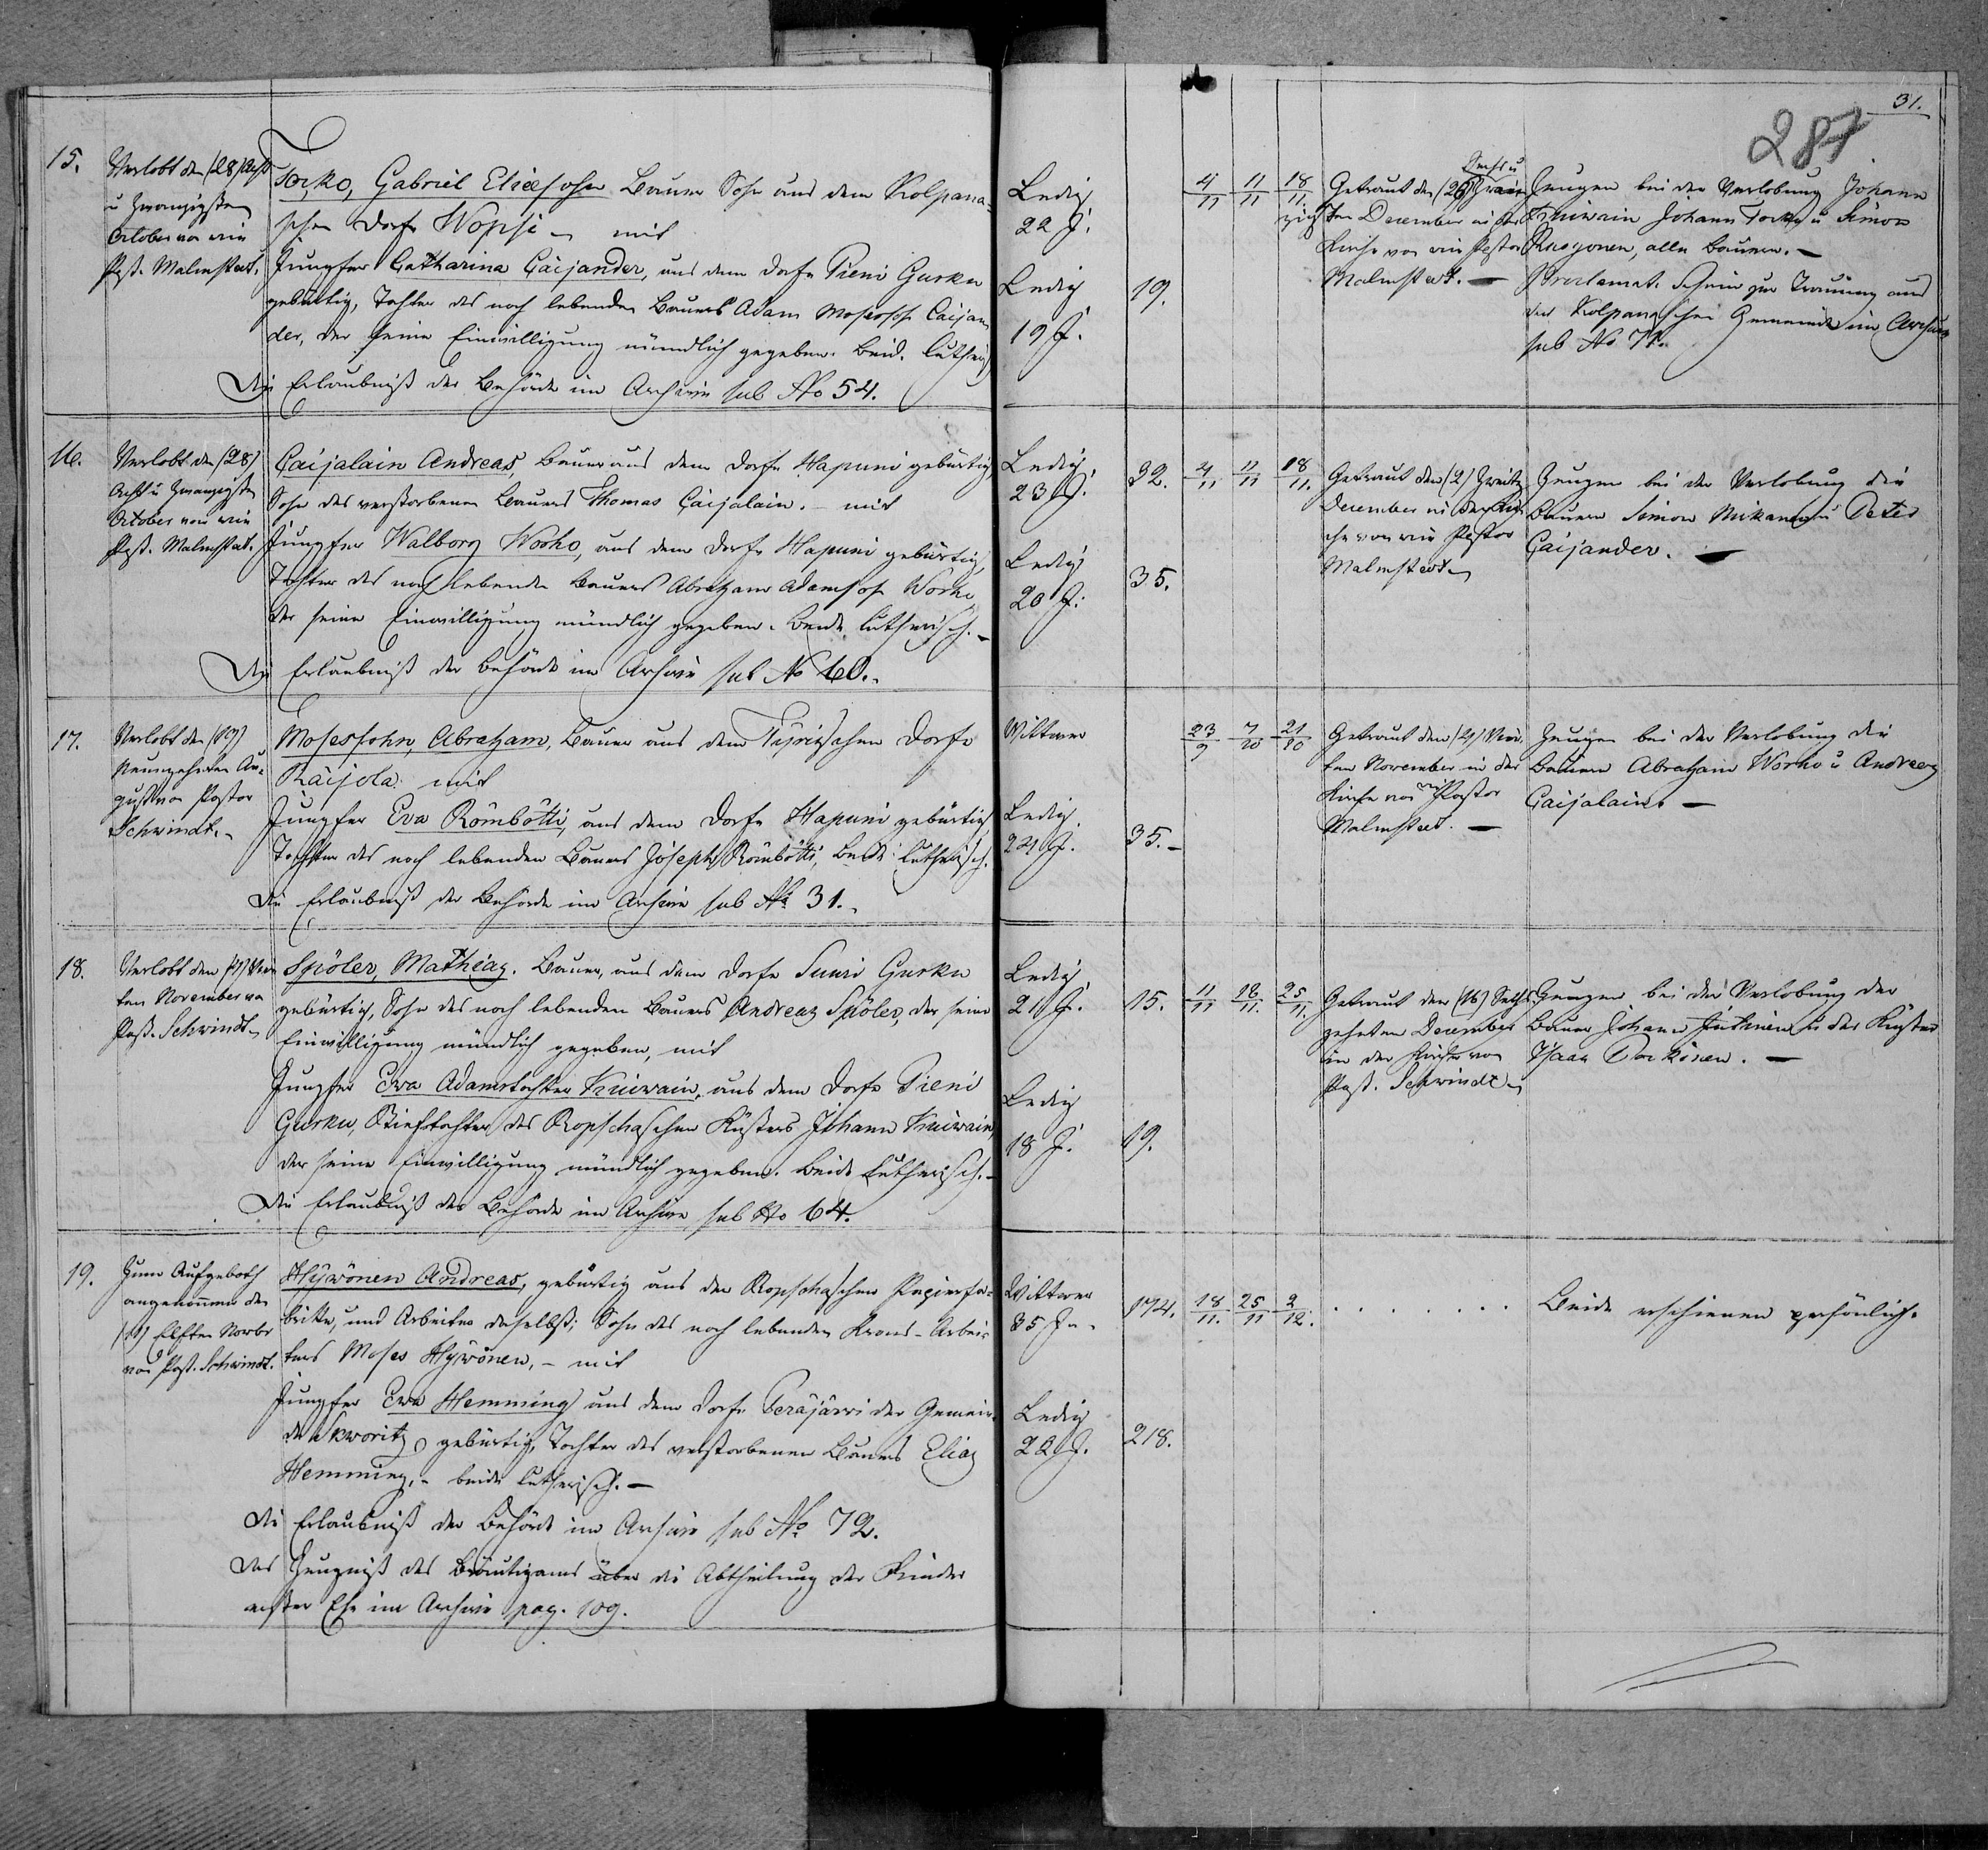 31.
287
15.
Verlobt den (28) Acht
u Zwanzigsten
October von vic
Past. Malmstedt.
Torko, Gabriel Eliassohn Bauer Sohn aus dem Kolpana-
schen Dorfe Wopsi – mit
Jungfer Catharina Caijander, aus dem Dorfe Pieni Gurku
gebürtig, Tochter des noch lebenden Bauers Adam Mosessohn Caijan-
der, der seine Einwilligung mündlich gegeben. Beid. lutherisch
Die Erlaubniß der Behörde im Archive sub No 54.
Ledig
22 J.
Ledig
19 J.
19.
4/11 11/11 18/11
Getraut den (26) Sechs u Zwan-
zigsten December in der
Kirche von vic Pastor
Malmstedt. –
Zeugen bei der Verlobung Johann
Kuiwain Johann Torko u Simon
alle Bauern. –
Proclamat. Schein zur Trauung aus
der Kolpanaschen Gemeinde im Archive
sub No 71.
16.
Verlobt den (28)
Acht u Zwanzigsten
October von vic
Past. Malmstedt.
Caijalain Andreas, Bauer aus dem Dorfe Hapuni gebürtig,
Sohn des verstorbenen Bauers Thomas Caijalain. – mit
Jungfer Walborg Worho, aus dem Dorfe Hapuni gebürtig,
Tochter des noch lebenden Bauers Abraham Adamssohn Worho
der seine Einwilligung mündlich gegeben. Beide lutherisch. –
Die Erlaubniß der Behörde im Archive sub No 60.
Ledig.
23 J.
Ledig
20 J.
32.
35.
4/11 11/11 18/11.
Getraut den (2) Zweiten
December in der Kir-
che von vic Pastor
Malmstedt. –
Zeugen bei der Verlobung die
Bauern Simon Mikanen u Peter
Caijander. –
17.
Verlobt den (19)
Neunzehnten Au-
gust von Pastor
Schwindt. –
Mosessohn, Abraham, Bauer aus dem Tyrisschen Dorfe
Räisola mit
Jungfer Eva Römbötti, aus dem Dorfe Hapuni gebürtig
Tochter des noch lebenden Bauers Joseph Römbötti, Beide lutherisch.
Die Erlaubniß der Behörde im Archive sub No 31.
Wittwer
Ledig.
24 J.
35. –
23/9 7/10 21/10
Getraut den (4) Vier-
ten November in der
Kirche von vic Pastor
Malmstedt. –
Zeugen bei der Verlobung die
Bauern Abraham Worho u Andreas
Caijalain. –
18.
Verlobt den (4) Vier-
ten November von
Past. Schwindt. –
Spöler, Mathias. Bauer, aus dem Dorfe Suuri Gurku
gebürtig, Sohn des noch lebenden Bauers Andreas Spöler, der seine
Einwilligung mündlich gegeben, mit
Jungfer Eva Adamstochter Kuiwain, aus dem Dorfe Pieni
Gurku, Stieftochter des Ropschaschen Küsters Johann Kuiwain,
der seine Einwilligung mündlich gegeben. Beide lutherisch. –
Die Erlaubniß der Behörde im Archive sub No 64.
Ledig
21 J.
Ledig
18 J.
15.
19.
11/11 18/11. 25/11.
Getraut den (16) Sechs-
zehnten December
in der Kirche von
Past. Schwindt –
Zeugen bei der Verlobung der
Bauer Johann u der Küster
Isaac Torkinen. –
19.
Zum Aufgeboth
angenommen den
(11) Elften Novbr
von Past. Schwindt.
Hywönen Andreas, gebürtig aus der Ropschaschen Papierfa-
brike, und Arbeiter daselbst; Sohn des noch lebenden Krons-Arbei-
ters Moses Hywönen, – mit
Jungfer Eva Hemming aus dem Dorfe Peräjärwi der Gemein-
de Skworitz gebürtig, Tochter des verstorbenen Bauers Elias
Hemming, – beide lutherisch. –
Die Erlaubniß der Behörde im Archive sub No 72.
Das Zeugniß des Bräutigams über die Abtheilung der Kinder
erster Ehe im Archive pag. 109.
Wittwer
35 J.
Ledig
22 J.
174.
218.
18/11. 25/11 2/12.
. . . . . . . .
Beide erschienen persönlich.